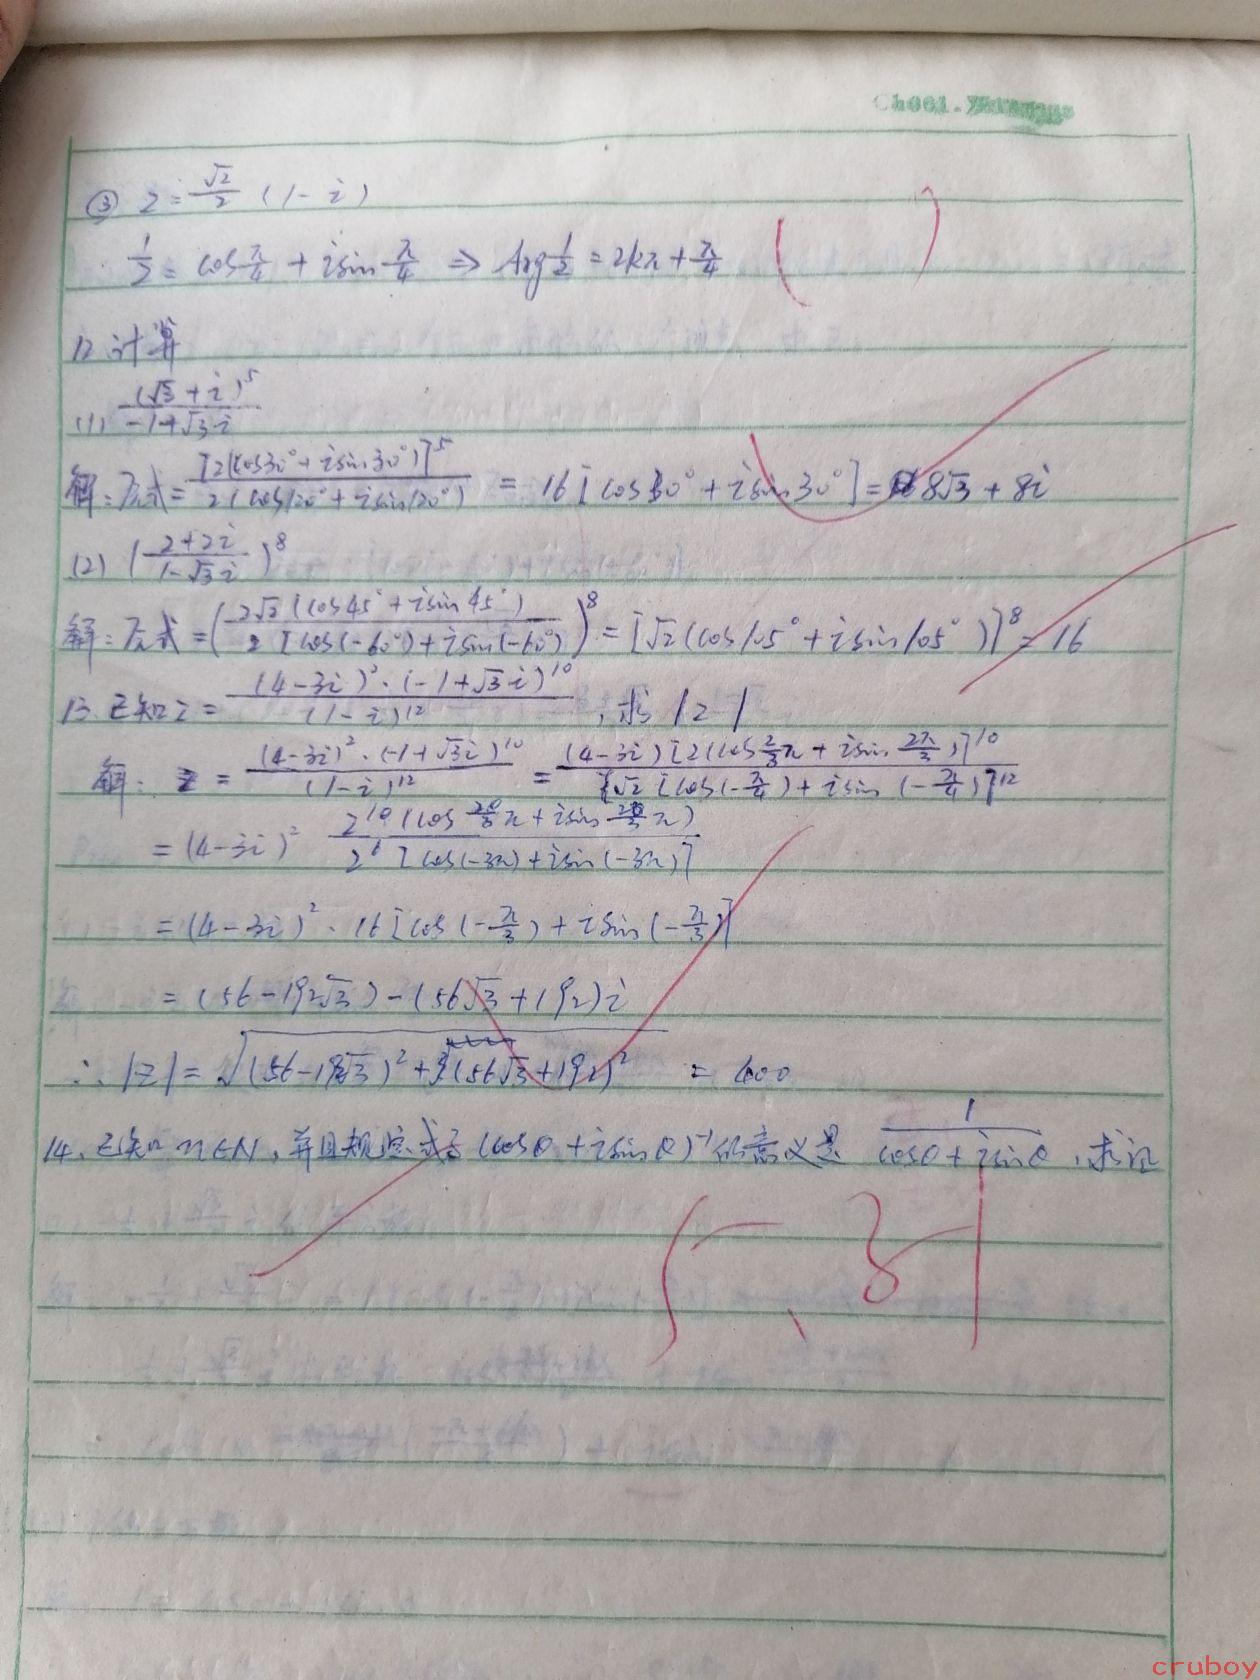 Ch001.
③ z = √2/2 (1-i)
1/z = cos π/4 + i sin π/4 ⇒ Arg 1/z = 2kπ + π/4
12 计算
(1) (√3+i)^5 / (-1+√3i)
解:原式 = [2(cos30°+isin30°)]^5 / 2(cos120°+isin120°) = 16[cos30°+isin30°] = 8√3+8i
(2) ((2+2i)/(1-√3i))^8
解:原式 = (2√2(cos45°+isin45°) / 2[cos(-60°)+isin(-60°)])^8 = [√2(cos105°+isin105°)]^8 = 16
13. 已知z = (4-3i)^2·(-1+√3i)^10 / (1-i)^12 , 求|z|
解: z = (4-3i)^2·(-1+√3i)^10 / (1-i)^12 = (4-3i)[2(cos 2/3 π + isin 2π/3)]^10 / {√2[cos(-π/4)+isin(-π/4)]^12
= (4-3i)^2 2^10(cos 20/3 π + isin 20/3 π) / 2^6[cos(-3π)+isin(-3π)]
= (4-3i)^2·16[cos(-π/3)+isin(-π/3)]
= (56-192√3)-(56√3+192)i
∴|z| = √((56-192√3)^2+(56√3+192)^2) = 400
14. 已知n∈N, 并且规定式子(cosθ+isinθ)^-1的意义是 1/(cosθ+isinθ) , 求证
cruboy